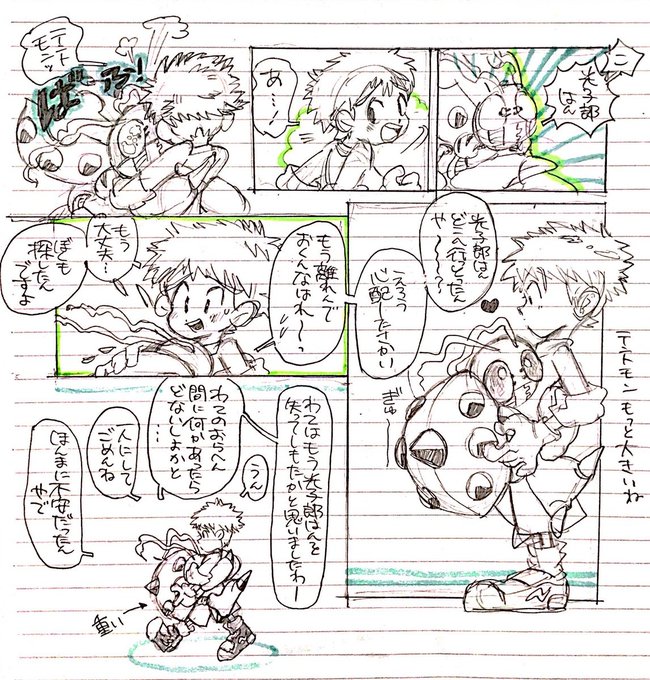 光子郎
はん
あ…!
テント
モンッ
がばっ!
光子郎はん
どこへ行ってたん
や〜〜〜?
えろう
心配してたさかい
もう離れんで
おくんなはれ〜っ
もう
大丈夫…
ぼくも
探したん
ですよ
ぎゅ〜
テントモンもっと大きいね
わてはもう光子郎はんを
失うてしもたかと思いましたわー
うん
わてのおらへん
間に何かあったら
どないしよかと
…
一人にして
ごめんね
ほんまに不安だったん
やで
重い